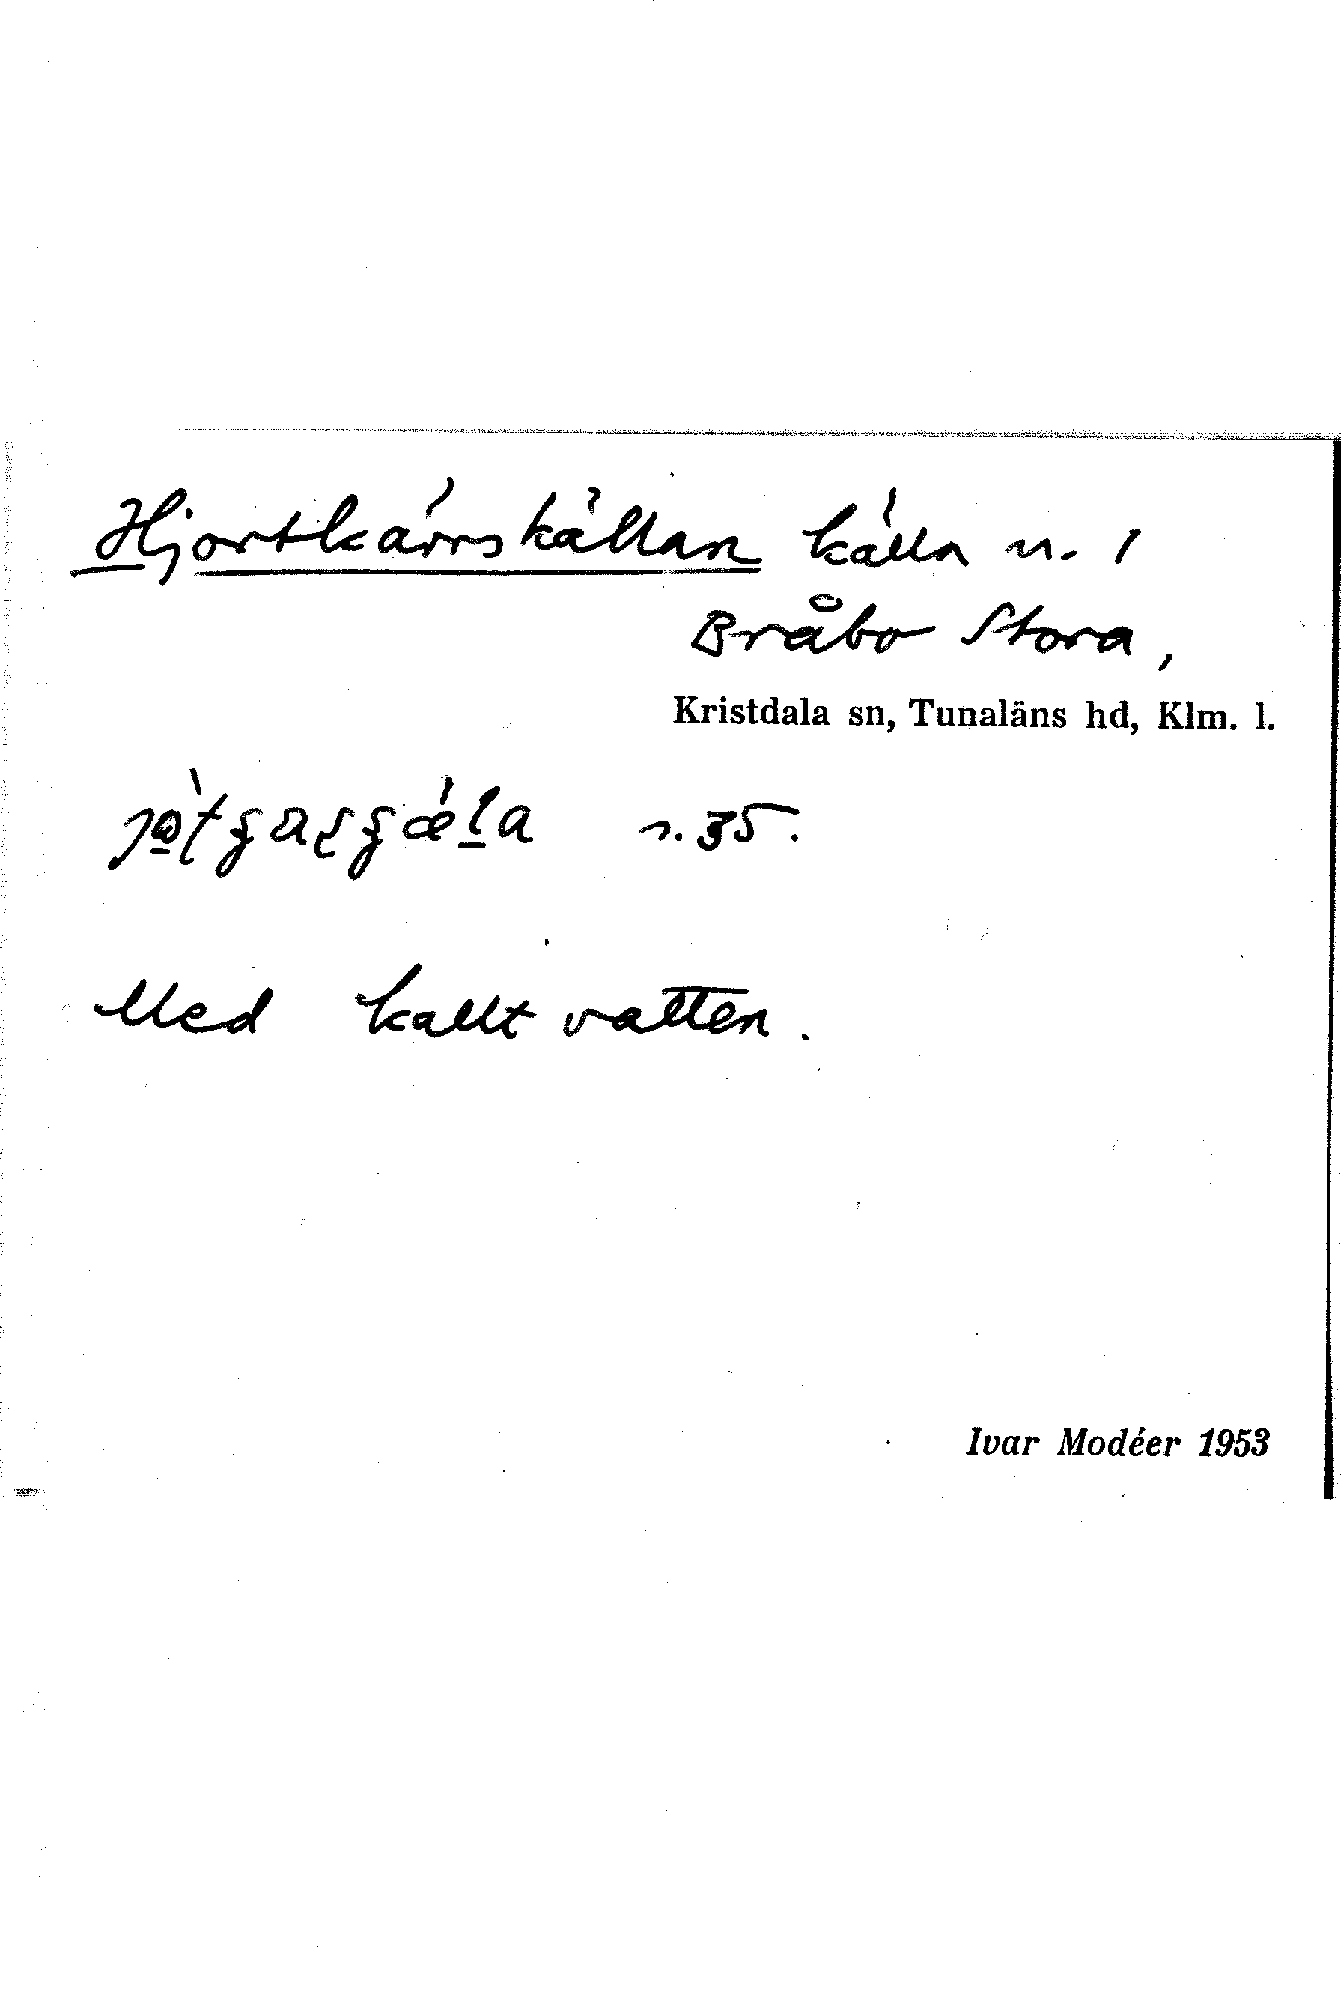 Hjortkärrskällan källa n. 1
Bråbo Stora,
Kristdala sn, Tunaläns hd, Klm. l.
n. 35.
Med kallt vatten.
Ivar Modéer 1953